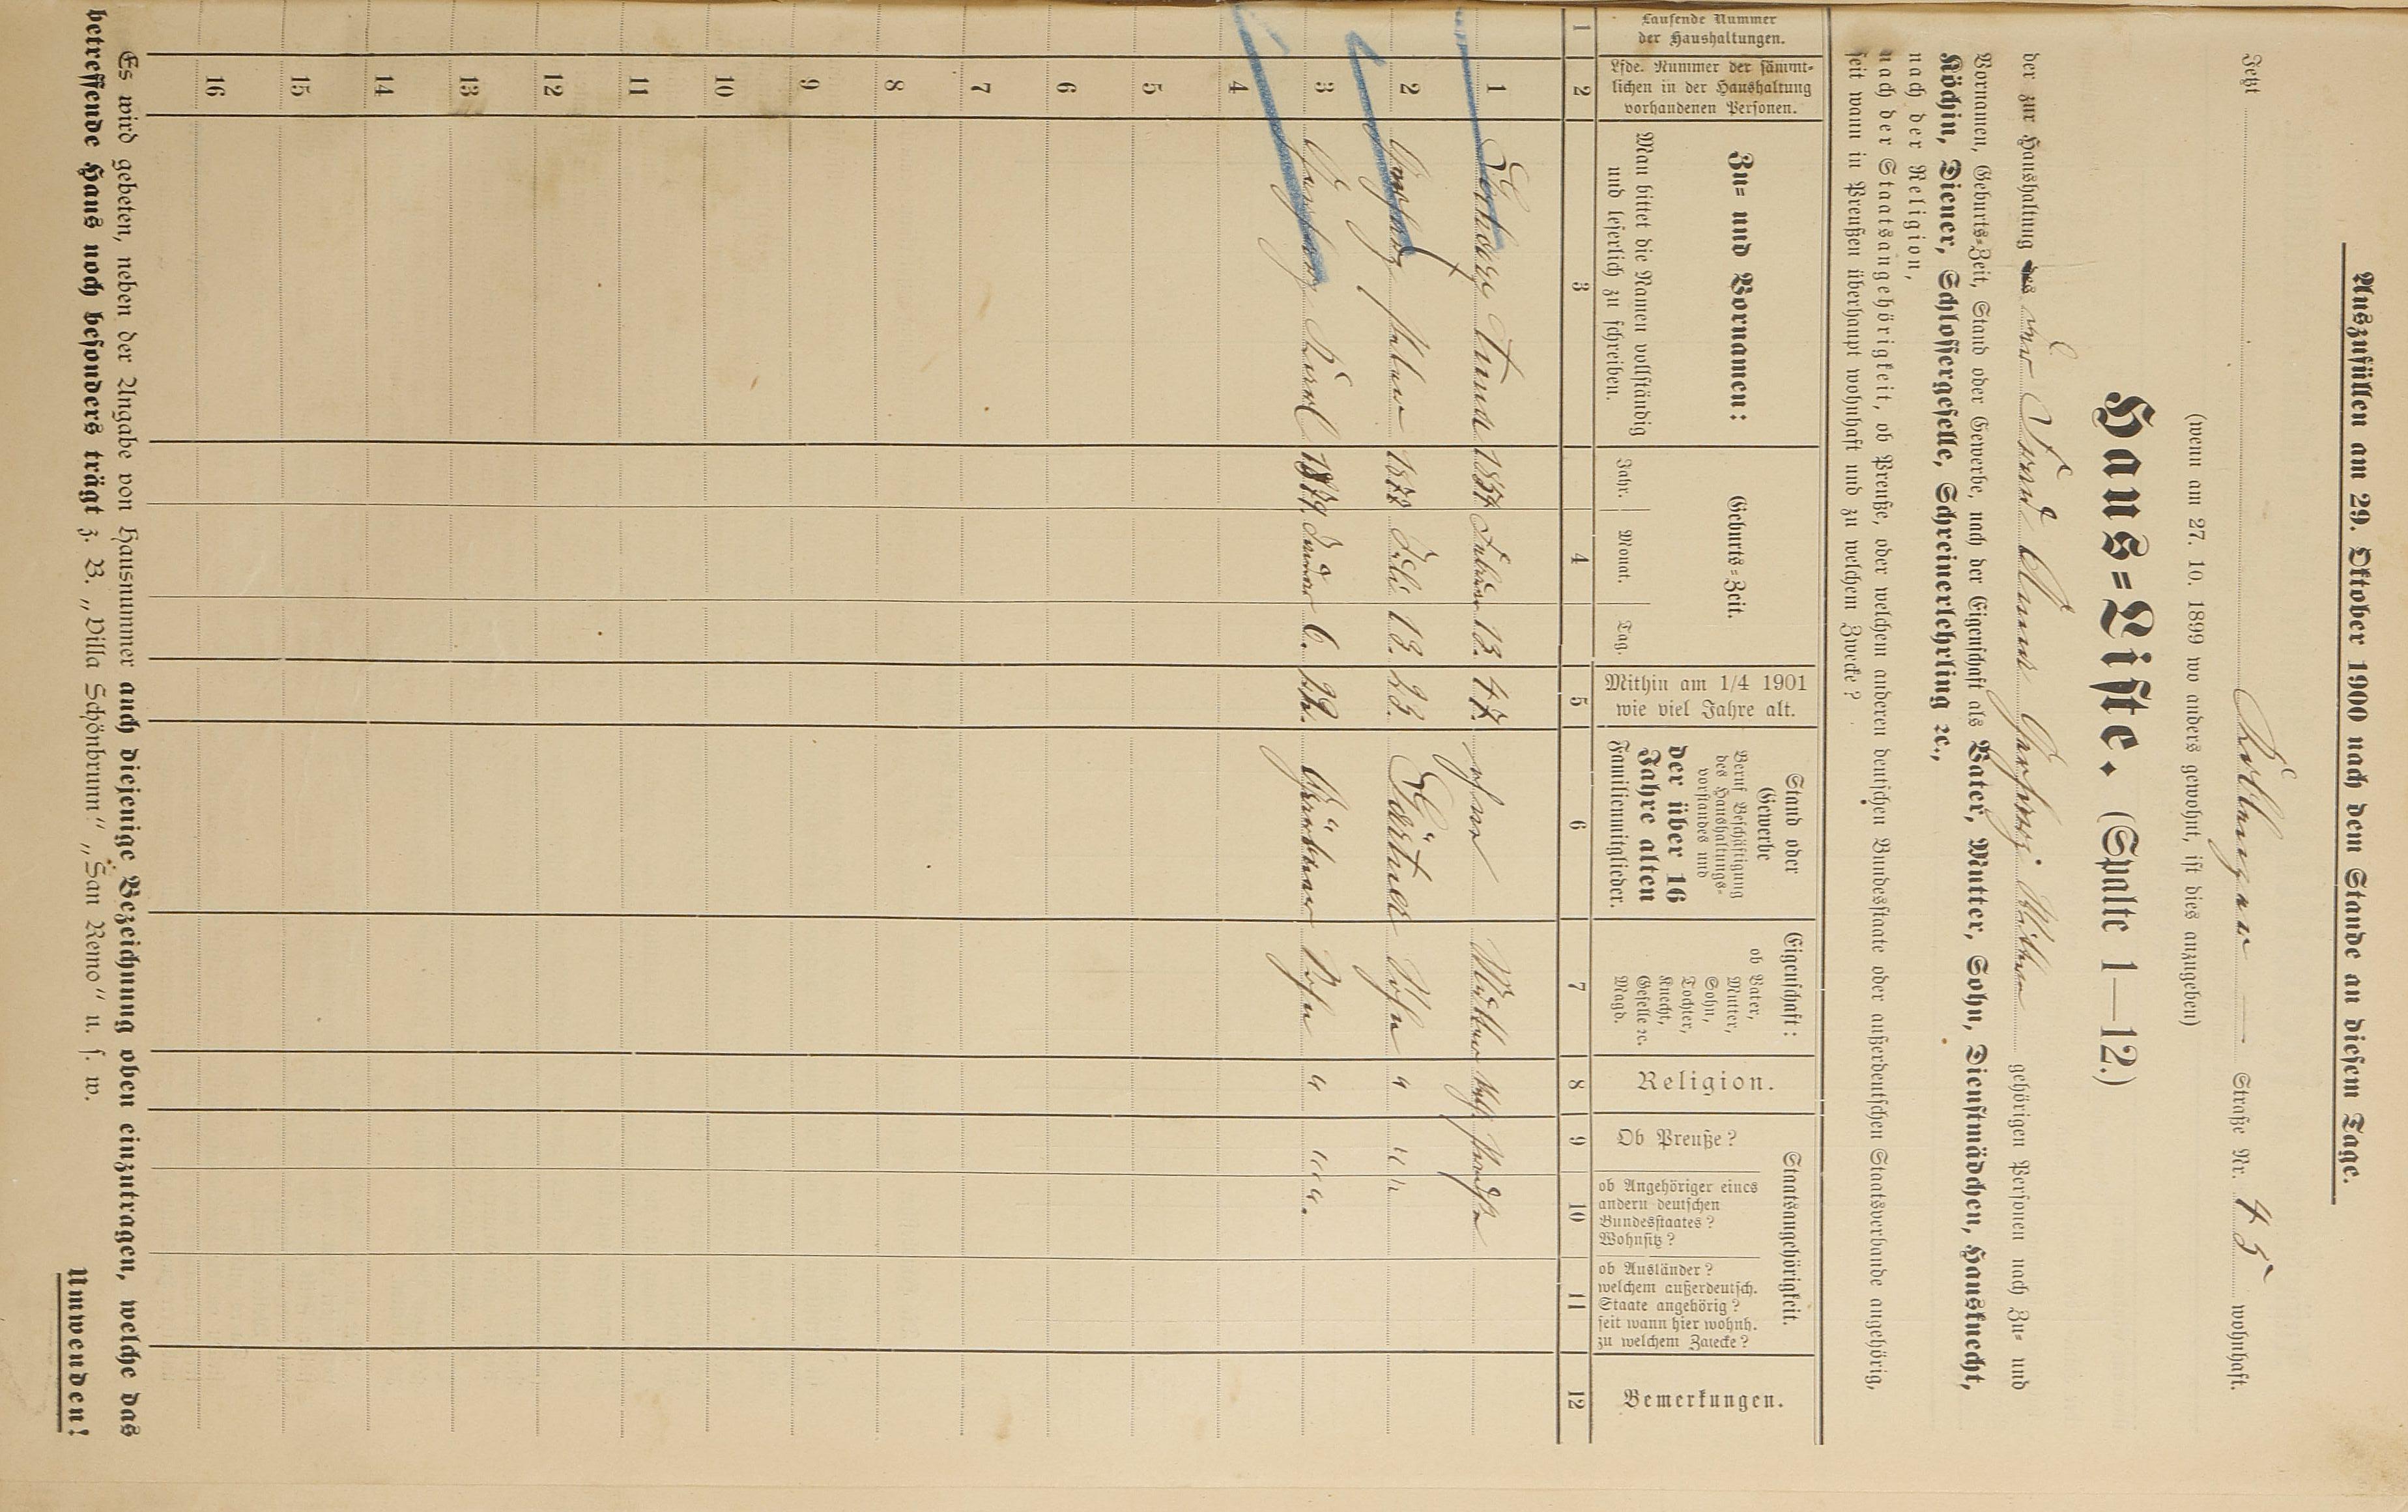 Auszufüllen am 29. Oktober 1900 nach dem Stande an diesem Tage.
Jetzt Straße Nr. 45 wohnhaft.
(wenn am 27. 10. 1899 wo anders gewohnt, ist dies anzugeben)
Haus=Liste. (Spalte 1—12.)
der zur Haushaltung des gehörigen Personen nach Zu= und
Vornamen, Geburts=Zeit, Stand oder Gewerbe, nach der Eigenschaft als Vater, Mutter, Sohn, Dienstmädchen, Hausknecht,
Köchin, Diener, Schlossergeselle, Schreinerlehrling ꝛc.,
nach der Religion,
nach der Staatsangehörigkeit, ob Preuße, oder welchem anderen deutschen Bundesstaate oder außerdeutschen Staatsverbande angehörig,
seit wann in Preußen überhaupt wohnhaft und zu welchem Zwecke?
Laufende Nummer
der Haushaltungen.
Lfde. Nummer der sämmt-
lichen in der Haushaltung
vorhandenen Personen.
Zu= und Vornamen:
Man bittet die Namen vollständig
und leserlich zu schreiben.
Geburts=Zeit.
Jahr.
Monat.
Tag.
Mithin am 1/4 1901
wie viel Jahre alt.
Stand oder
Gewerbe
Beruf Beschäftigung
des Haushaltungs-
vorstandes und
der über 16
Jahre alten
Familienmitglieder.
Eigenschaft:
ob Vater,
Mutter,
Sohn,
Tochter,
Knecht,
Geselle ꝛc.
Magd.
Religion.
Staatsangehörigkeit.
Ob Preuße?
ob Angehöriger eines
andern deutschen
Bundesstaates?
Wohnsitz?
ob Ausländer?
welchem außerdeutsch.
Staate angehörig?
seit wann hier wohnh.
zu welchem Zwecke?
Bemerkungen.
1 2 3 4 5 6 7 8 9 10 11 12
1 Anna Februar 13. 47. ohne Mutter
2 Juli 13. 23. Gärtner Sohn " " "
3 Karl 1879 Januar 6. 22. Sohn " " " "
4
5
6
7
8
9
10
11
12
13
14
15
16
Es wird gebeten, neben der Angabe von Hausnummer auch diejenige Bezeichnung oben einzutragen, welche das
betreffende Haus noch besonders trägt z. B. „Villa Schönbrunn" „San Remo" u. s. w.
Umwenden!